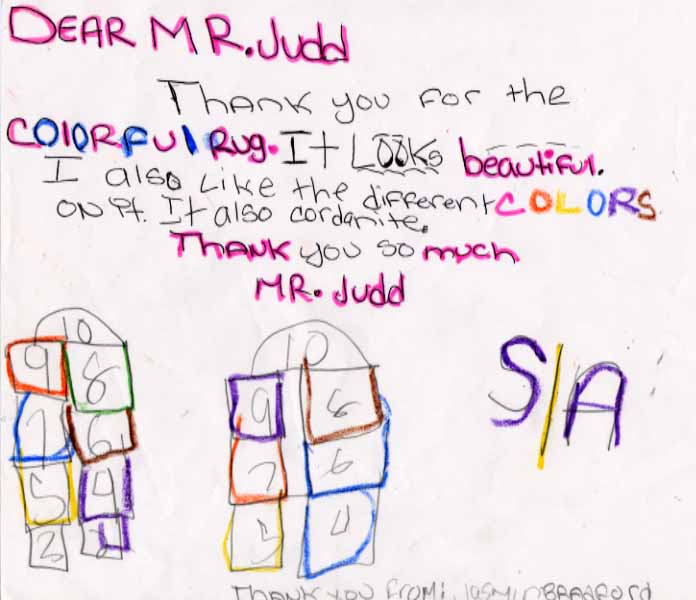 DEAR MR. Judd
Thank you for the
COLORFUL RUG. It Looks beautiful.
I also Like the different COLORS
ON it. It also cordanite.
Thank you so much
MR. Judd
10 10
9 8 9 8
7 6 7 6
5 4 5 4
3 2
S/A
Thank you From: Jasmin BRADFORD